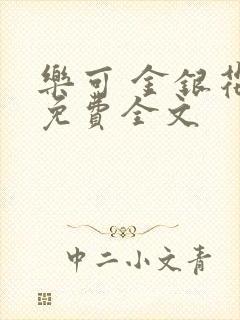 樂可 金銀花
免費全文
中二小文青